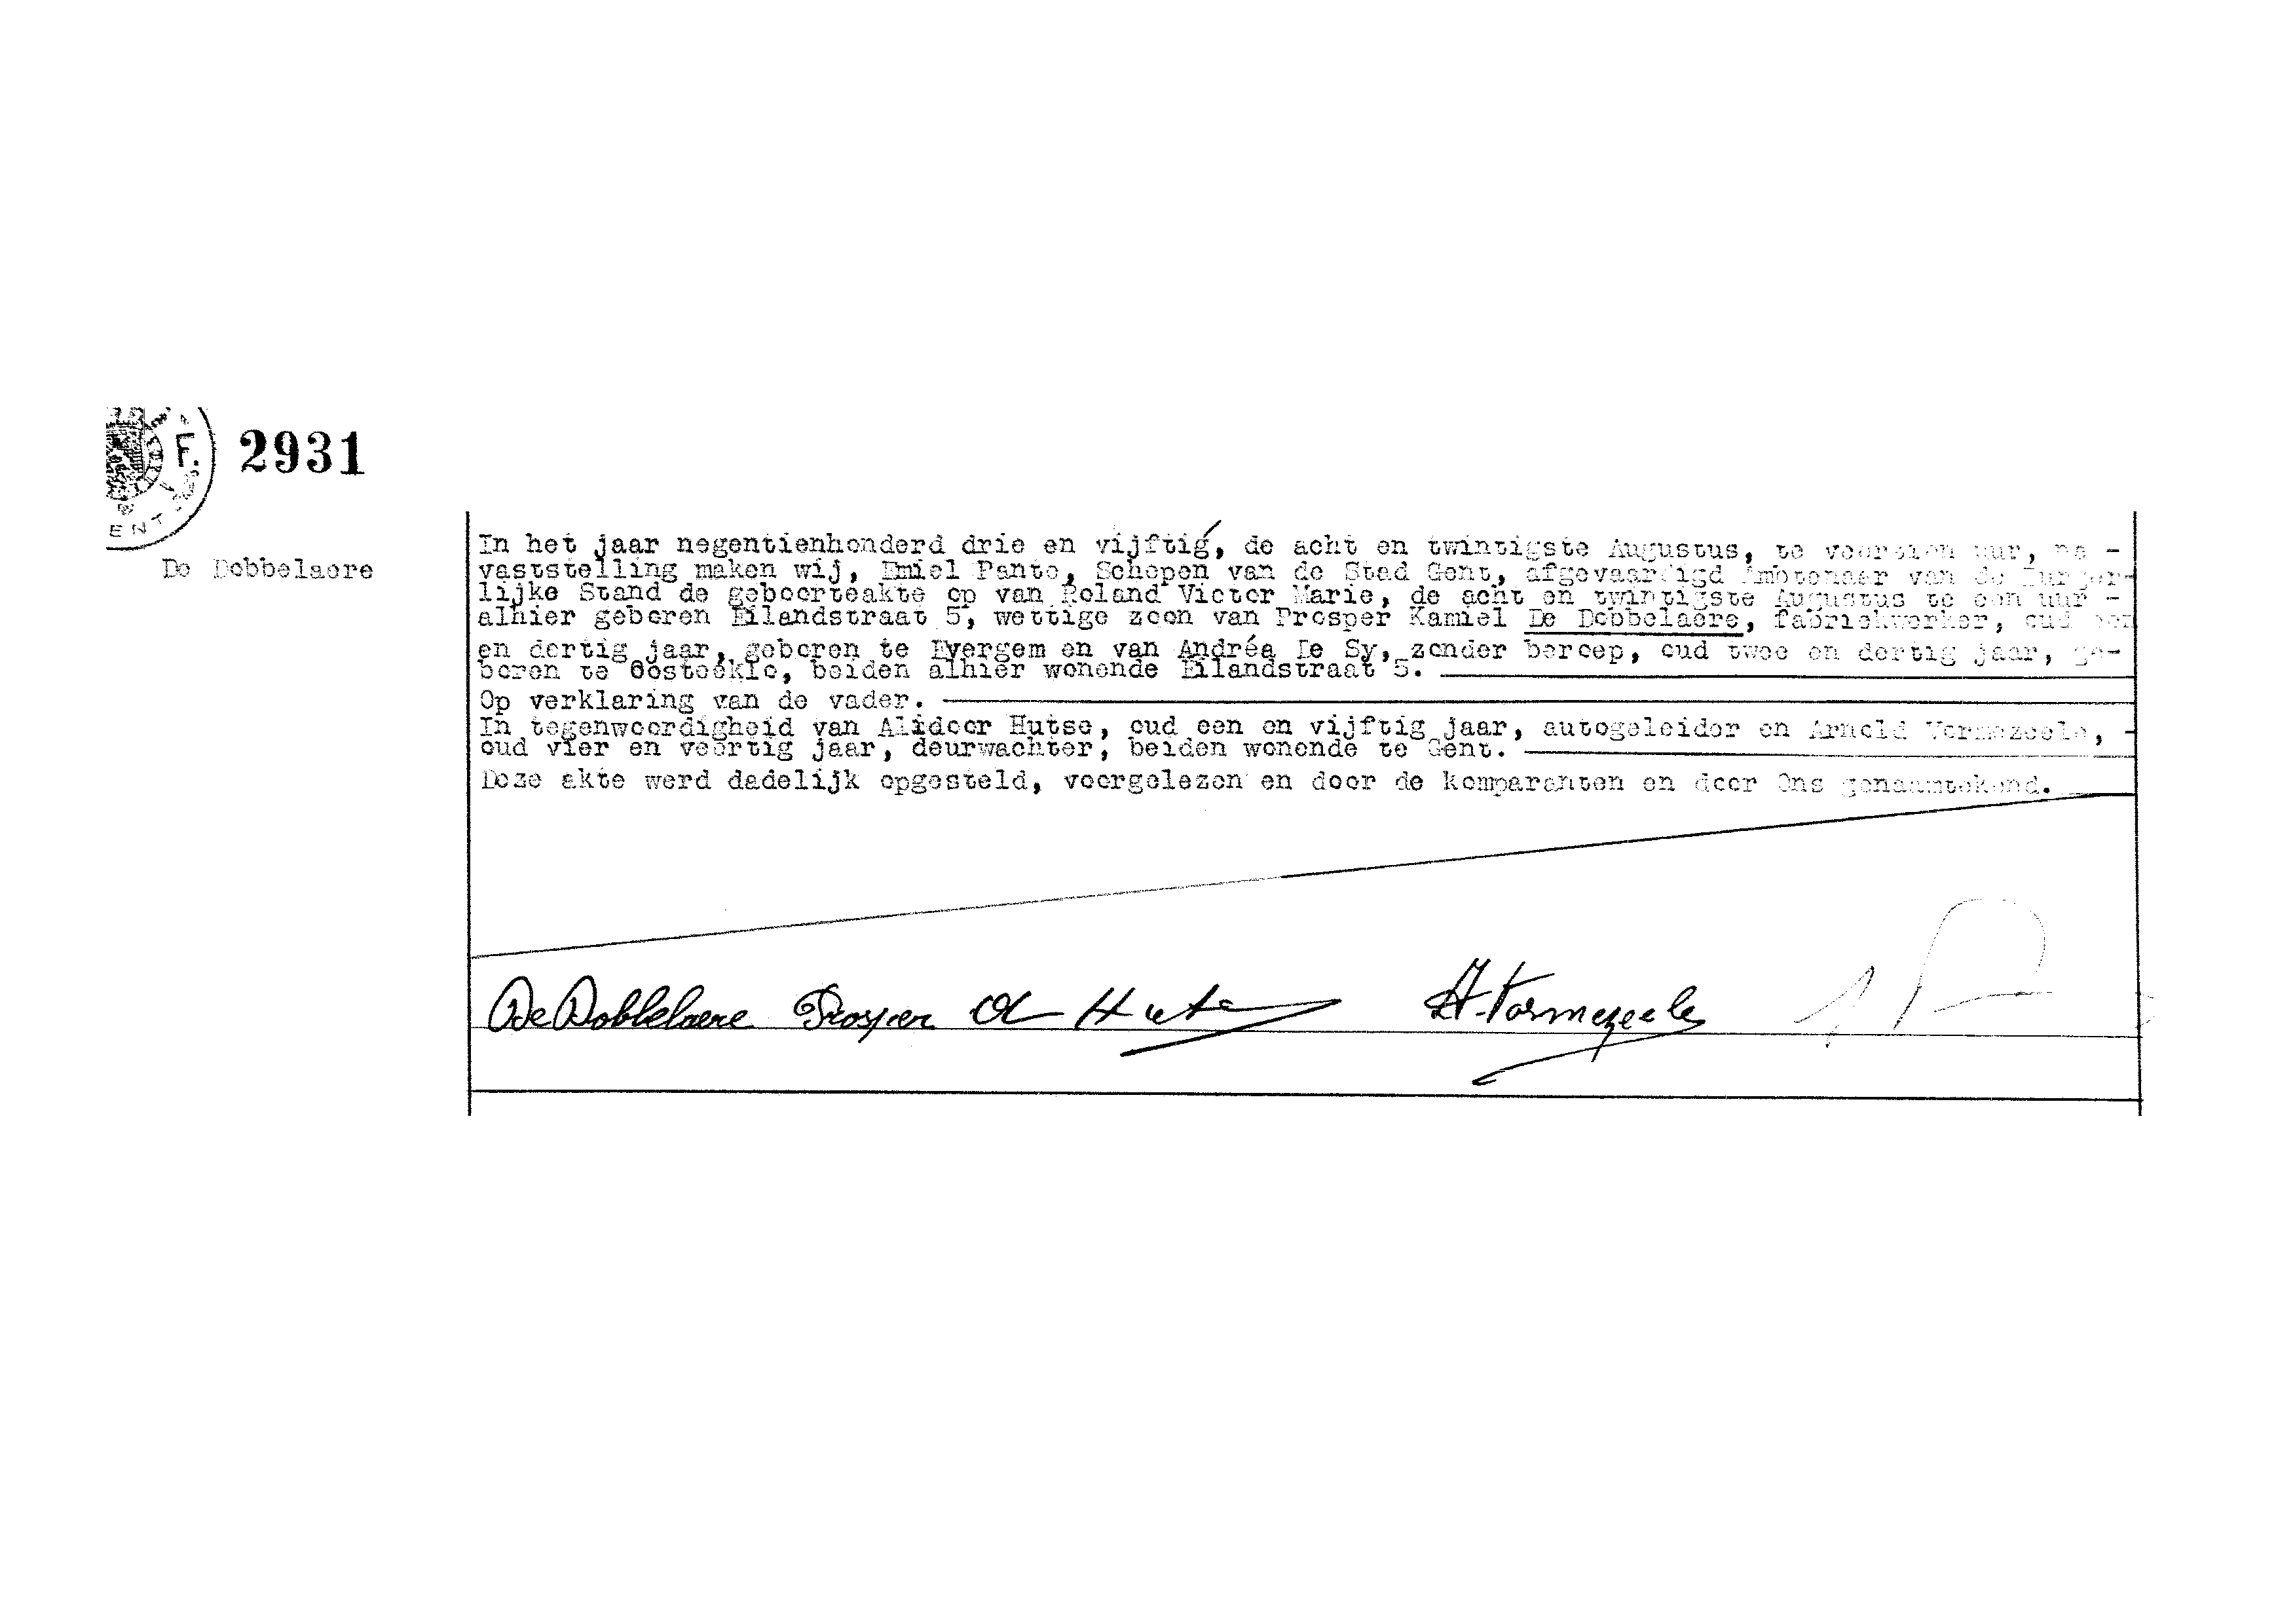 F.
ENT
2931
De Dobbelaere
In het jaar negentienhonderd drie en vijftig, de acht en twintigste Augustus, te veertien uur, na -
vaststelling maken wij, Emiel Panto, Schepen van de Stad Gent, afgevaardigd Ambtenaar van de Burger-
lijke Stand de geboorteakte op van Roland Victor Marie, de acht en twintigste Augustus te een uur -
alhier geboren Eilandstraat 5, wettige zoon van Prosper Kamiel De Dobbelaere, fabriekwerker, oud een
en dertig jaar, geboren te Evergem en van Andréa De Sy, zonder beroep, oud twee en dertig jaar, ge-
boren te Oosteeklo, beiden alhier wonende Eilandstraat 5.
Op verklaring van de vader.
In tegenwoordigheid van Alidoor Hutse, oud een en vijftig jaar, autogeleider en Arnold Vermezeele, -
oud vier en veertig jaar, deurwachter, beiden wonende te Gent.
Deze akte werd dadelijk opgesteld, voorgelezen en door de komparanten en door Ons genaamtekend.
De Dobbelaere Prosper Hutse A. Vermezeele